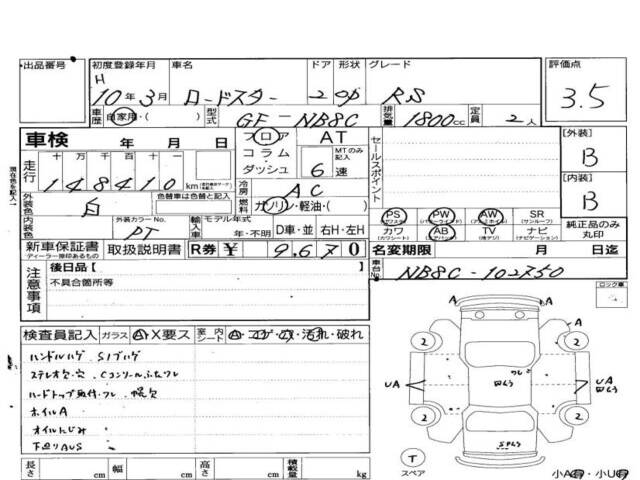 出品番号
初度登録年月 車名 ドア 形状 グレード 評価点
H 10年 3月 ロードスター 2 OP RS 3.5
車歴 自家用・( ) 型式 GF-NB8C 排気量 1800cc 定員 2人
車検 年 月 日 フロア AT セールスポイント [外装]
コラム・ MTのみ記入 B
走行 十万 千百十 148410km ダッシュ 6速
冷房 AC [内装]
外装色 白 色替車は色替と記入 燃料 ガソリン・軽油・( ) B
PS PW AW SR
内装色 外装カラーNo. PT 輸入車 モデル年式 年・不明 D車・並 右H・左H カワ AB TV ナビ 純正品のみ丸印
新車保証書 取扱説明書 R券 ¥ 9,670 名変期限 月 日迄
ディーラー捺印あるもの
注意事項 後日品[ ] 車台No. NB8C-102750
不具合箇所等
ロック車
検査員記入 ガラス A・X要ス 室内 シート 汚れ・破れ
ハンドルハゲ S1ブハゲ
ステレオ欠・穴 Cコンソールふたワレ
ハードトップ取付・ワレ 幌欠
ホイルA
オイルにじみ
下廻りAUS
A A A
2 2
UA UA
2 2
T
スペア
長さ cm 幅 cm 高さ cm 積載量 kg 小A有・小U有